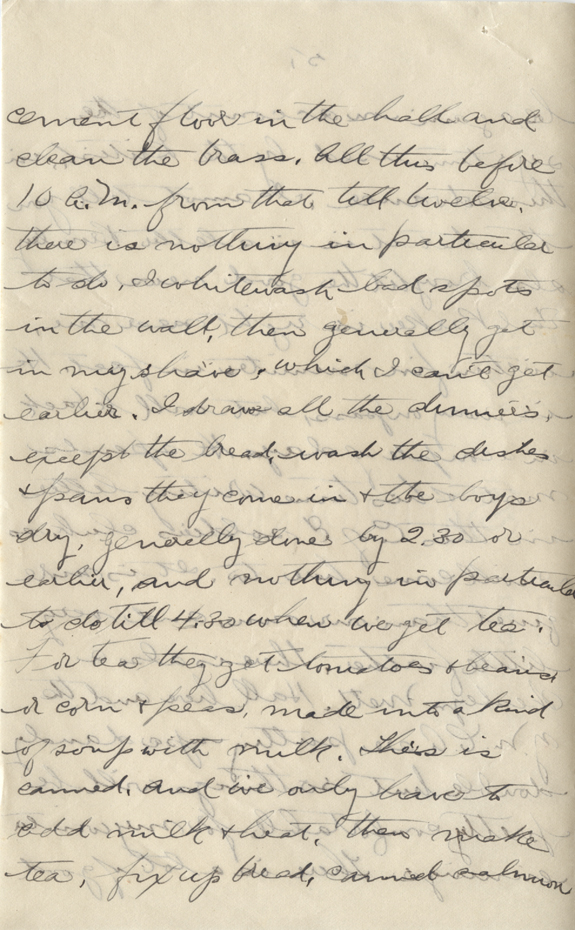 cement floor in the hall and
clean the brass. All this before
10 A.M. from that till twelve,
there is nothing in particular
to do, I whitewash bad spots
in the wall, then generally get
in my shave, which I can't get
earlier. I draw all the dinners,
except the bread, wash the dishes
& pans they come in & the boys
dry, generally done by 2.30 or
earlier, and nothing in particular
to do till 4.30 when we get tea.
For tea they get tomatoes & beans
or corn & peas, made into a kind
of soup with milk. This is
canned, and we only have to
add milk & heat, then make
tea, fix up bread, canned salmon